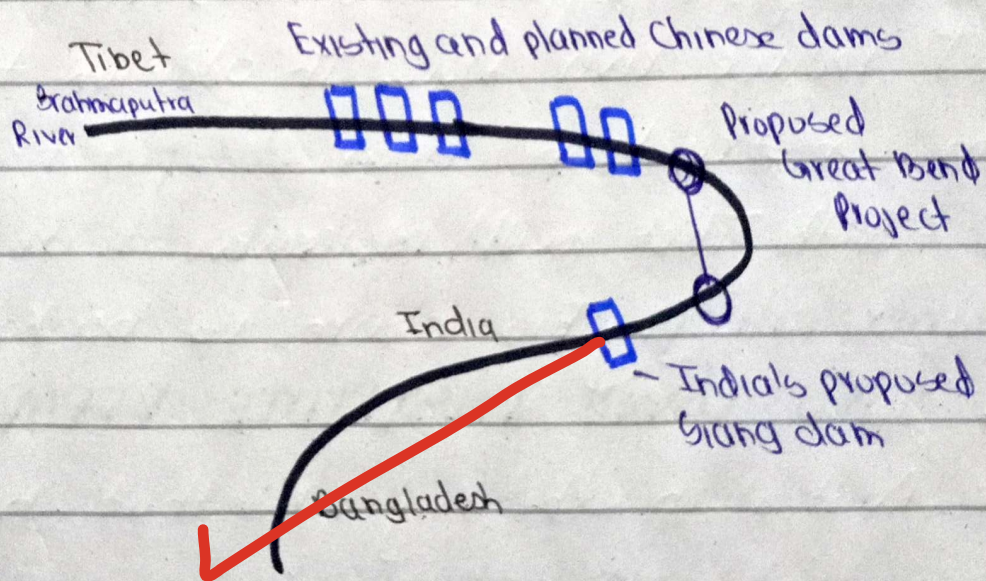 Existing and planned Chinese dams
Tibet
Brahmaputra
River
Proposed
Great Bend
Project
India
India's proposed
Siang dam
Bangladesh